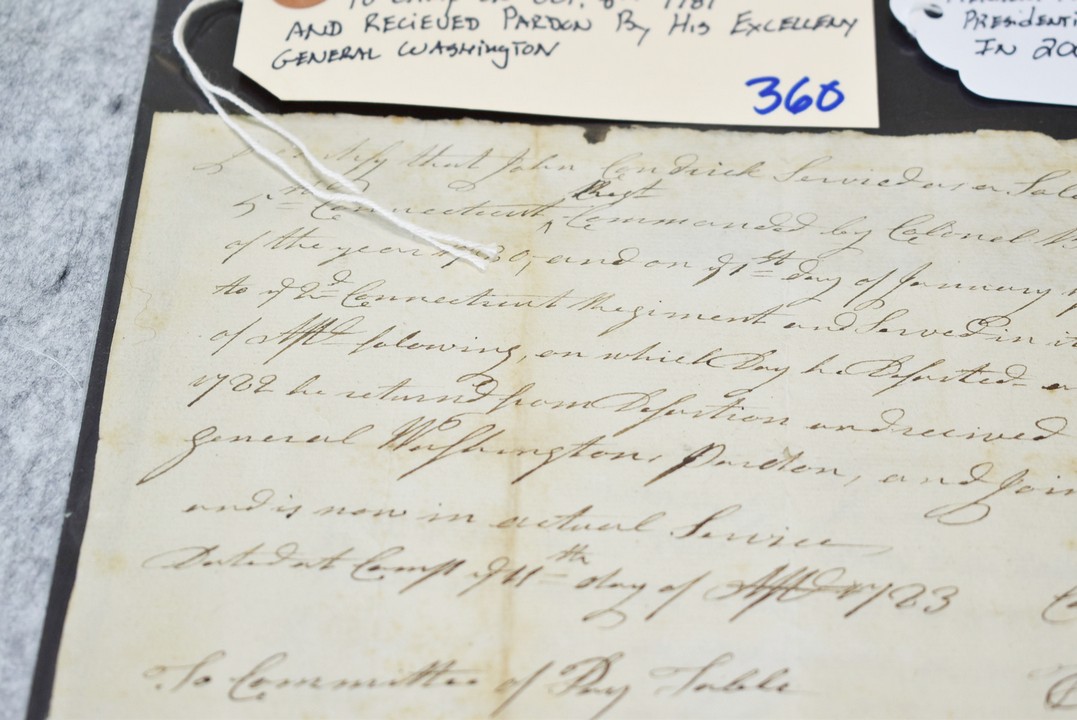 TO CAMP ON OCT. 8th 1781
AND RECIEVED PARDON By His EXCELLENY
GENERAL WASHINGTON
360
PRESIDENTI
IN 200
I certify that John Condrick Serviced as a Sol
5th Connecticut Regt Commanded by Colonel
of the year 1780, and on ye 1st day of January
to ye 2d Connecticut Regiment and Served in it
of folowing, on which Day he Desarted
1782 he returnd from Desartion and received
general Washingtons Pardon, and Join
and is now in actual Service,
Dated at Camp ye 11th day of 1783
To Committee of Pay Table